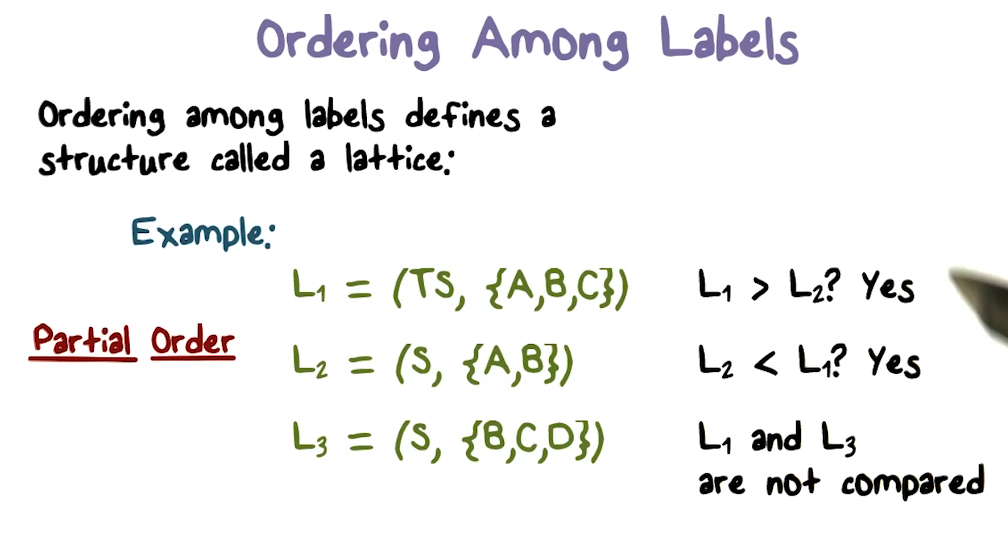 Ordering Among Labels
Ordering among labels defines a
structure called a lattice:
Example:
L₁ = (TS, {A,B,C})
L₁ > L₂? Yes
Partial Order
L₂ = (S, {A,B})
L₂ < L₁? Yes
L₃ = (S, {B,C,D})
L₁ and L₃
are not compared